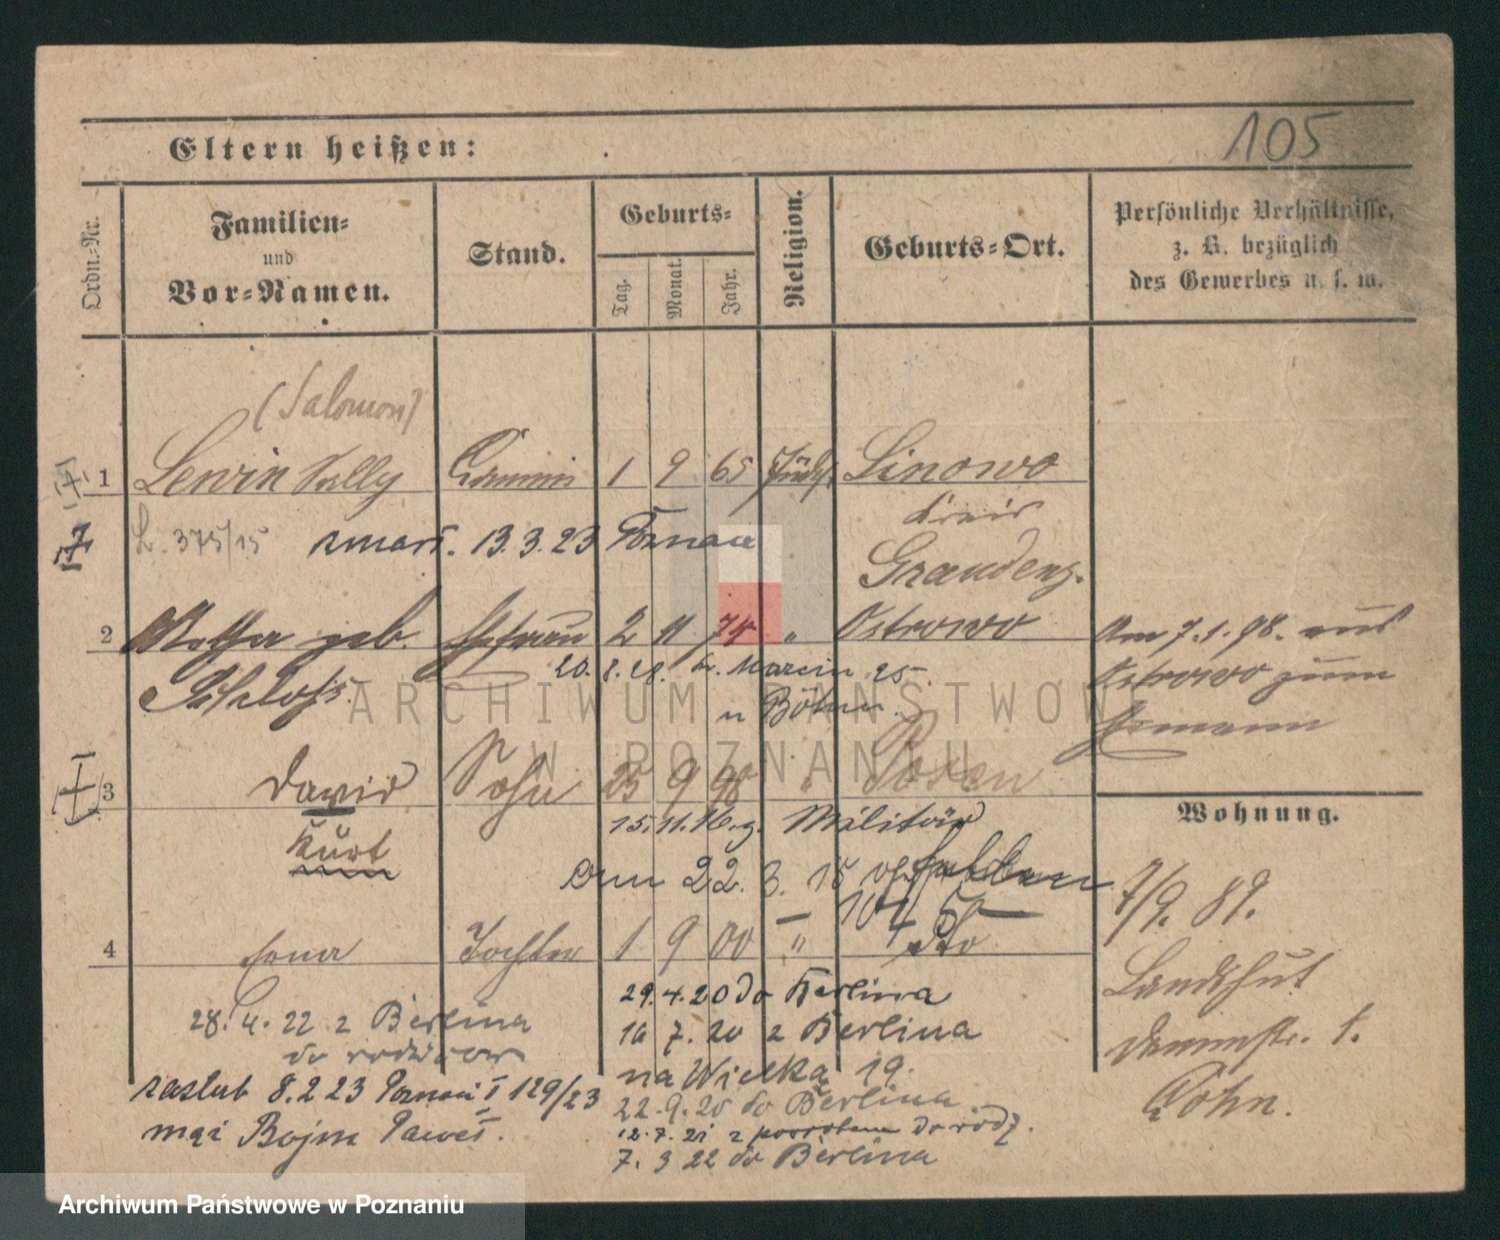 105
Eltern heißen:
Ordn.-Nr.
Familien-
und
Vor-Namen.
Stand.
Geburts-
Tag.
Monat.
Jahr.
Religion.
Geburts-Ort.
Persönliche Verhältnisse,
z. B. bezüglich
des Gewerbes u. s. w.
(Salomon)
1 Lewin Sally Commis 1 9 65 Jüd. Linowo
Kreis
375/15 zmarł. 13.3.23 Poznań
Graudenz.
2 geb. Ehefrau 2 11 74 " Ostrowo
Schloss.
20. 8. 28. Św. Marcin 25.
u Böhm.
Am 7.1.98. aus
Ostrowo zum
Ehemann
3 David Sohn 25 9 98 " Posen
Kurt
15.11.16. z. Militär
Am 22. 3. 18 gefallen
4 Erna Tochter 1 9 00 " dto
28. 4. 22 z Berlina
do rodziców
zaślub 8.2 23 Poznań I 129/23
mąż Bojm Paweł.
29.4.20 do Berlina
16 7. 20 z Berlina
na Wielka 19.
22.9.20 do Berlina
12.7.21 z powrotem do rodz.
7. 3 22 do Berlina
Wohnung.
7/9. 89.
Landshut
1.
Cohn.
ARCHIWUM PAŃSTWOWE
W POZNANIU
Archiwum Państwowe w Poznaniu